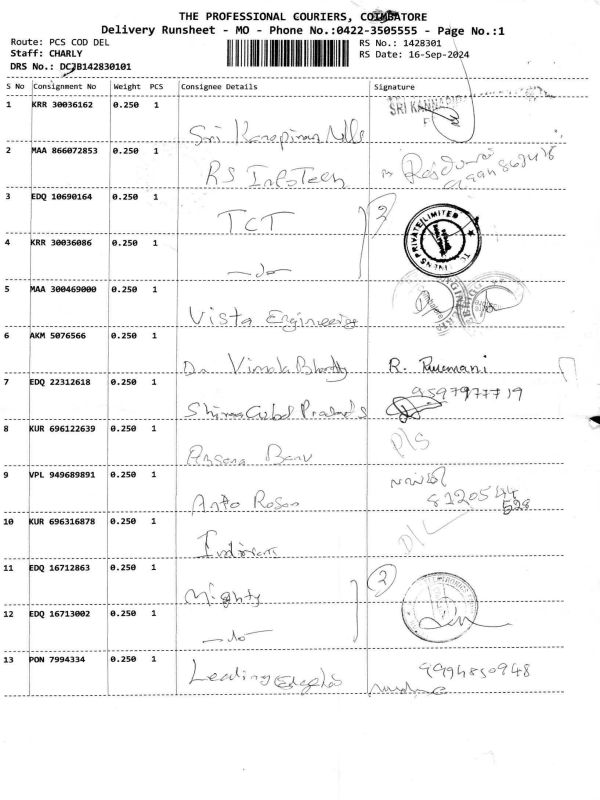 THE PROFESSIONAL COURIERS, COIMBATORE
Delivery Runsheet - MO - Phone No.:0422-3505555 - Page No.:1
Route: PCS COD DEL RS No.: 1428301
Staff: CHARLY RS Date: 16-Sep-2024
DRS No.: DCJB142830101
S No Consignment No Weight PCS Consignee Details Signature
1 KRR 30036162 0.250 1 SRI KANNAPIRAN
Sri Kanapiran Mills
2 MAA 866072853 0.250 1
RS InfoTech
3 EDQ 10690164 0.250 1 2
TCT PRIVATE LIMITED
4 KRR 30036086 0.250 1
-do-
5 MAA 300469000 0.250 1
Vista Engineering
6 AKM 5076566 0.250 1
Dr Vimala R.
7 EDQ 22312618 0.250 1 9597977719
Shiva
8 KUR 696122639 0.250 1 D/S
Banu
9 VPL 949689891 0.250 1
Anto 8120544
528
10 KUR 696316878 0.250 1 D/L
11 EDQ 16712863 0.250 1 2
Mighty
12 EDQ 16713002 0.250 1
-do-
13 PON 7994334 0.250 1 9994850948
Leading